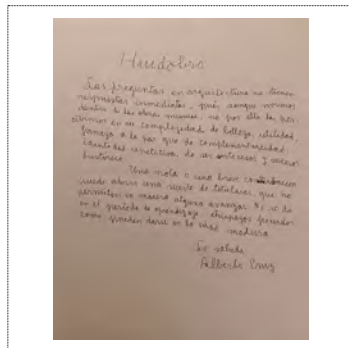 Huidobro
Las preguntas en arquitectura no tienen
respuestas inmediatas, pues aunque vivimos
dentro de las obras mismas, no por ello la per-
cibimos en su complejidad de belleza, utilidad,
a la par que de complementariedad,
de ser y
histórico.
Una sola o una breve
puede abrir una suerte de titulares, que no
permiten en manera alguna avanzar. Es o de
en el período de aprendizaje,
como pueden darse en la edad madura.
Lo saluda
Alberto Cruz